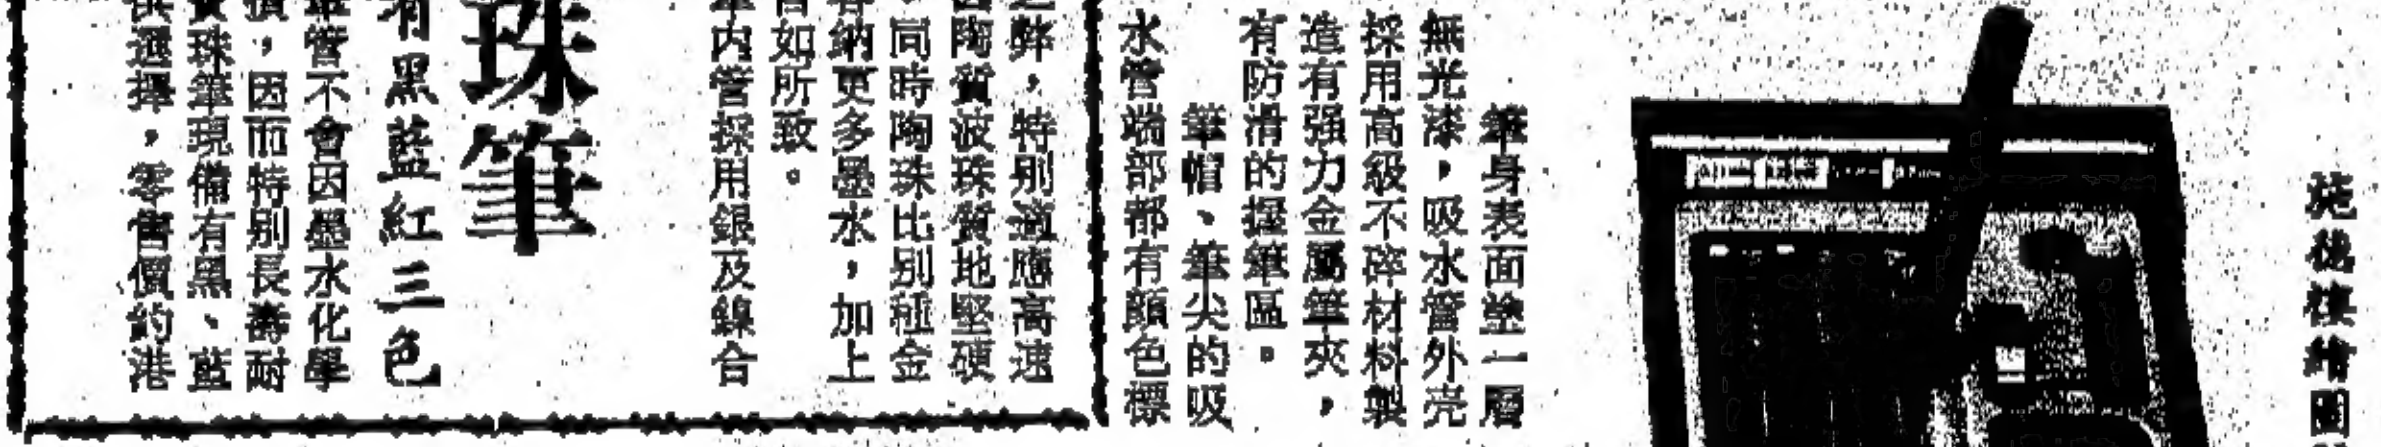 施德樓繪圖
筆身表面塗一層
無光漆，吸水管外壳
採用高級不碎材料製
造有强力金屬筆夾，
有防滑的握筆區。
筆帽、筆尖的吸
水管端部都有顔色標
之弊，特別適應高速
陶質波珠質地堅硬
，同時陶珠比別種金
容納更多墨水，加上
如所致。
內管採用銀及鎳合
珠筆
有黑藍紅三色
管不會因墨水化學
，因而特別長壽耐
珠筆現備有黑、藍
供選擇，零售價約港